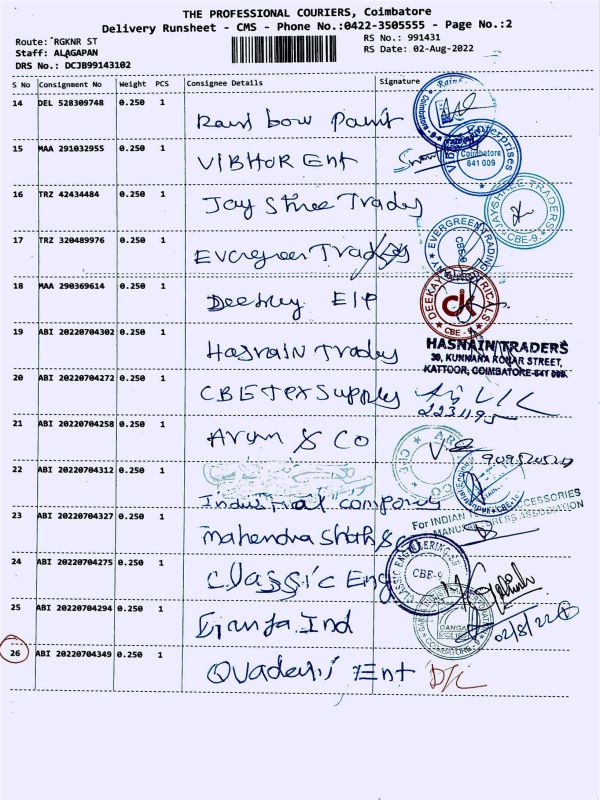 THE PROFESSIONAL COURIERS, Coimbatore
Delivery Runsheet - CMS - Phone No.:0422-3505555 - Page No.:2
Route: RGKNR ST
Staff: ALAGAPAN
DRS No.: DCJB99143102
RS No.: 991431
RS Date: 02-Aug-2022
S No Consignment No Weight PCS Consignee Details Signature
14 DEL 528309748 0.250 1 Rain bow Paint
15 MAA 291032955 0.250 1 VIBHOR Ent
Coimbatore
641 009
16 TRZ 42434484 0.250 1 Jay Shree Trades
JAYSHREE TRADERS CBE-9
17 TRZ 320489976 0.250 1 Evergreen Trades
EVERGREEN TRADING CBE-9
18 MAA 290369614 0.250 1 Deekay Elc
DEEKAY ELECTRICALS dk CBE - 9
19 ABI 20220704302 0.250 1 Hasnain Trades
HASNAIN TRADERS
30, KUNNANA KONAR STREET,
KATTOOR, COIMBATORE-641 009.
20 ABI 20220704272 0.250 1 CBE Tex Supplys
2231195
21 ABI 20220704258 0.250 1 Arun & Co
22 ABI 20220704312 0.250 1 Industrial company
23 ABI 20220704327 0.250 1 Mahendra Shah & Co
For INDIAN ACCESSORIES
MANUFACTURERS ASSOCIATION
24 ABI 20220704275 0.250 1 Classic Eng
CLASSIC ENGINEERING CBE-9
25 ABI 20220704294 0.250 1 Ganga Ind
GANGA
COIMBATORE
02/8/22
26 ABI 20220704349 0.250 1 Quaderi Ent D/L